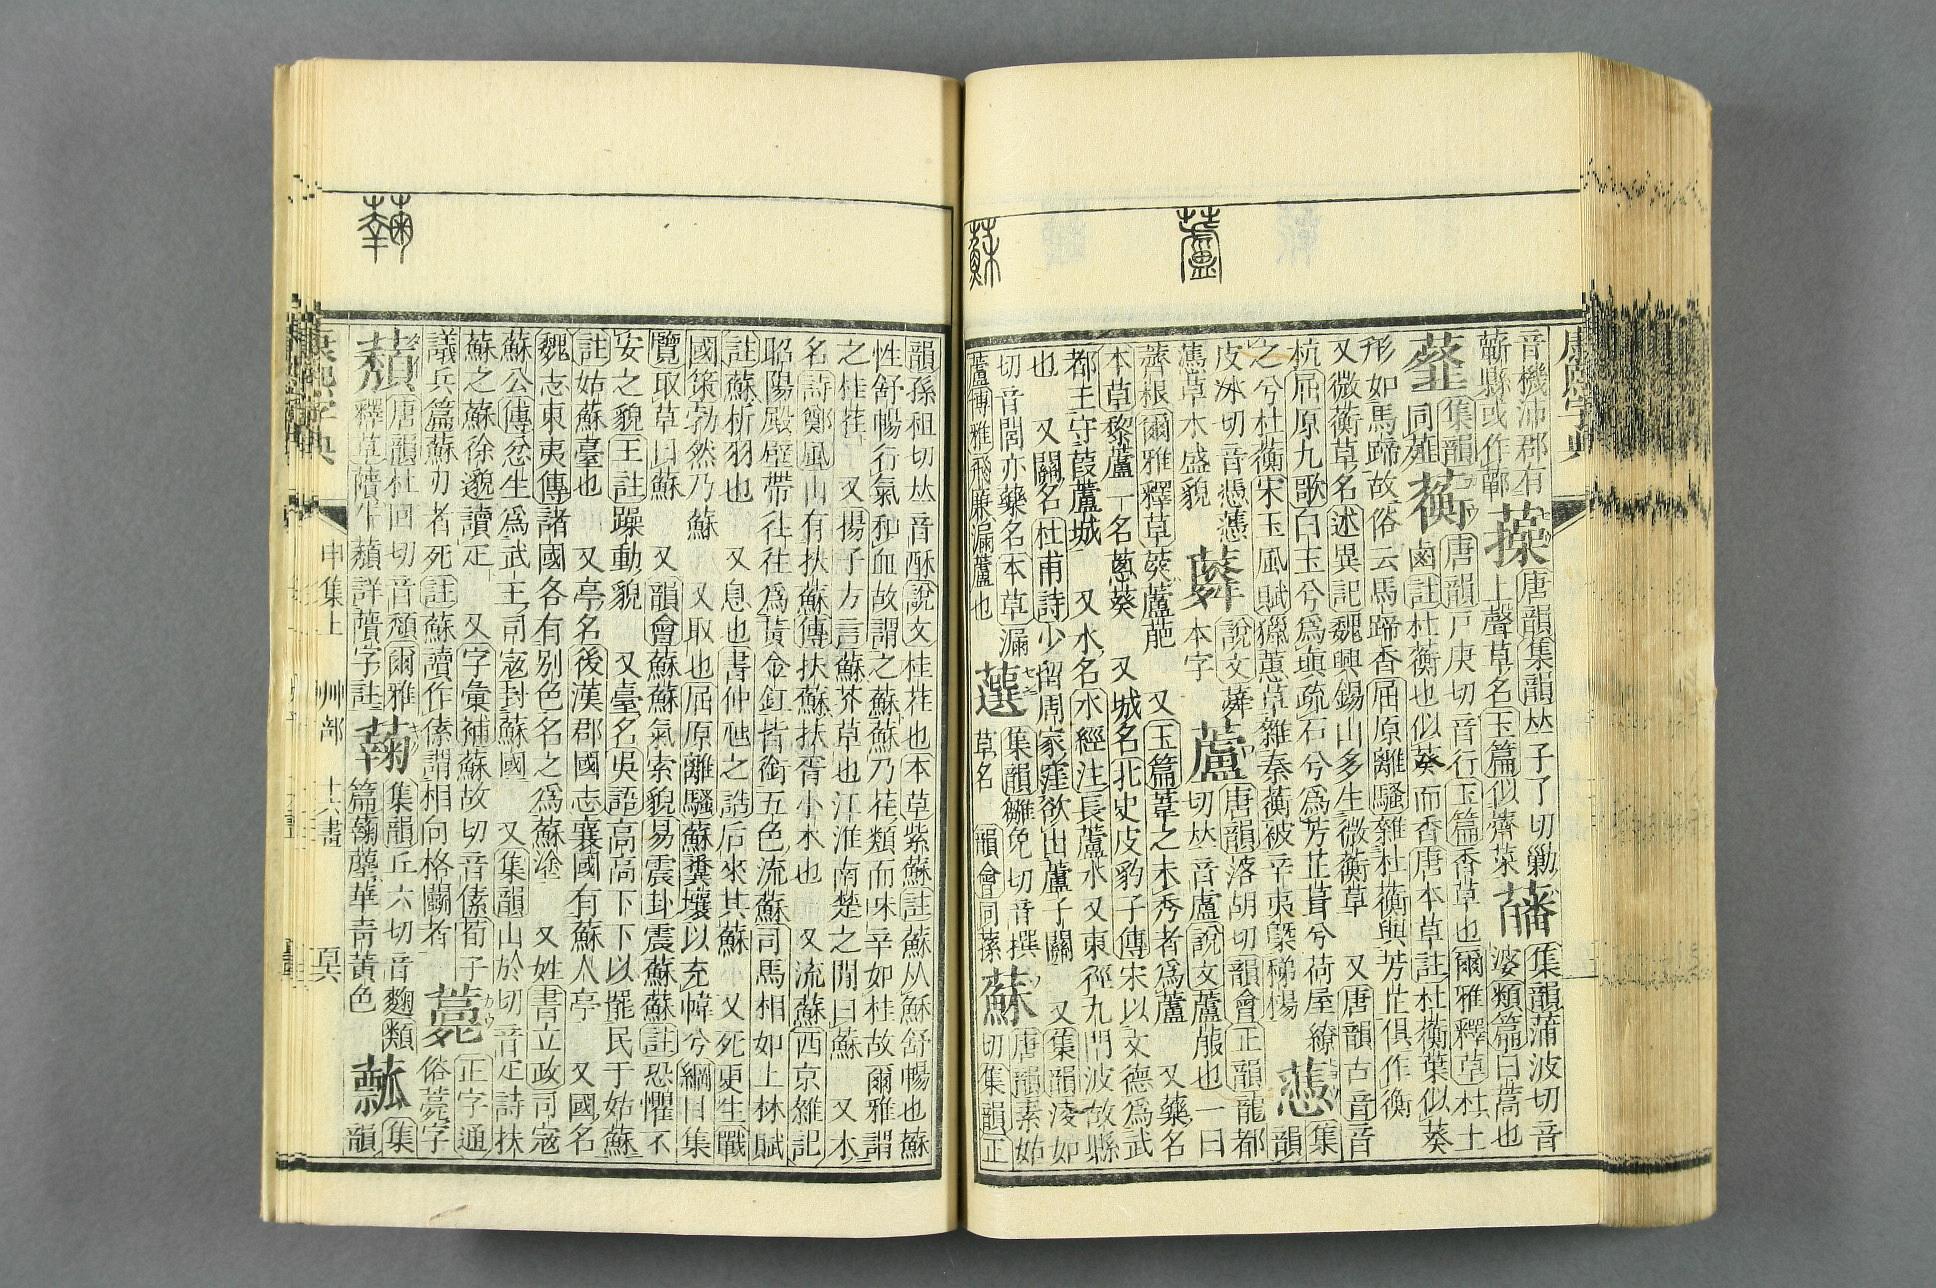 蘆
蘇
康熙字典
音機沛郡有
蘄縣或作鄿
唐韻集韻𠀤子了切勦
上聲草名玉篇似薺菜
集韻蒲波切音
婆類篇白蒿也
集韻
同薤
蘅
唐韻戸庚切音行玉篇香草也爾雅釋草杜土
鹵註杜蘅也似葵而香唐本草註杜蘅葉似葵
形如馬蹄故俗云馬蹄香屈原離騷雜杜蘅與芳芷俱作衡
又微蘅草名述異記魏興錫山多生微蘅草 又唐韻古音音
杭屈原九歌白玉兮爲瑱疏石兮爲芳芷葺兮荷屋繚
之兮杜蘅宋玉風賦獵蕙草雜秦蘅被辛夷槩稊楊
集韻
皮冰切音憑憑
薫草木盛貌
說文蕣
本字
蘆
唐韻落胡切韻會正韻龍都
切𠀤音盧說文蘆菔也一曰
薺根爾雅釋草葖蘆萉 又玉篇葦之未秀者爲蘆 又藥名
本草藜蘆一名蔥葵 又城名北史皮豹子傳宋以文德爲武
都王守葭蘆城 又水名水經注長蘆水又東徑九門波故縣
也 又關名杜甫詩少留周家窪欲出蘆子關 又集韻淩如
切音閭亦藥名本草漏
蘆博雅飛廉漏蘆也
集韻雛免切音撰
草名 韻會同
蘇
唐韻素姑
切集韻正
韻孫祖切𠀤音酥說文桂荏也本草紫蘇註蘇从穌舒暢也蘇
性舒暢行氣和血故謂之蘇蘇乃荏類而味辛如桂故爾雅謂
之桂荏 又揚子方言蘇芥草也江淮南楚之閒曰蘇 又木
名詩鄭風山有扶蘇傳扶蘇扶胥小木也 又流蘇西京雜記
昭陽殿壁帶往往爲黃金釭皆銜五色流蘇司馬相如上林賦
註蘇析羽也 又息也書仲虺之誥后來其蘇 又死更生戰
國策勃然乃蘇 又取也屈原離騷蘇糞壤以充幃兮綱目集
覽取草曰蘇 又韻會蘇蘇氣索貌易震卦震蘇蘇註恐懼不
安之貌王註躁動貌 又臺名吳語高高下下以罷民于姑蘇
註姑蘇臺也 又亭名後漢郡國志襄國有蘇人亭 又國名
魏志東夷傳諸國各有別邑名之爲蘇塗 又姓書立政司寇
蘇公傳忿生爲武王司寇封蘇國 又集韻山於切音疋詩扶
蘇之蘇徐邈讀疋 又字彙補蘇故切音傃荀子
議兵篇蘇刃者死註蘇讀作傃謂相向格鬭者
薧
正字通
俗薧字
蘈
唐韻杜回切音頹爾雅
釋草藬牛蘈詳藬字註
集韻丘六切音麴類
篇蘜蘠華靑黃色
集
韻
康熙字典
申集上
艸部
十六畫